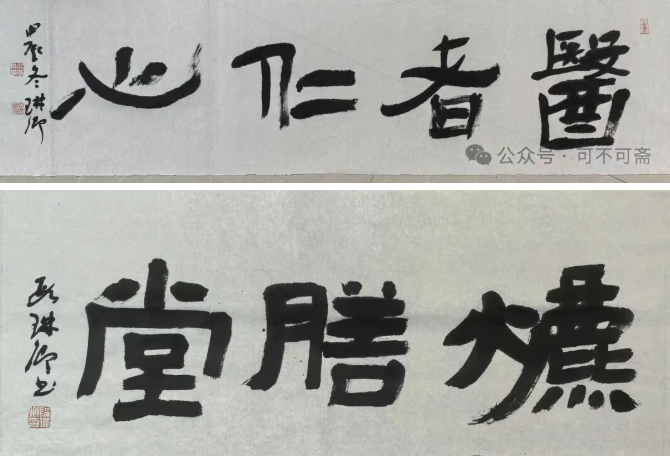 醫者仁心
甲辰冬琳卿
公众号 · 可不可斋
膳堂
琳卿书